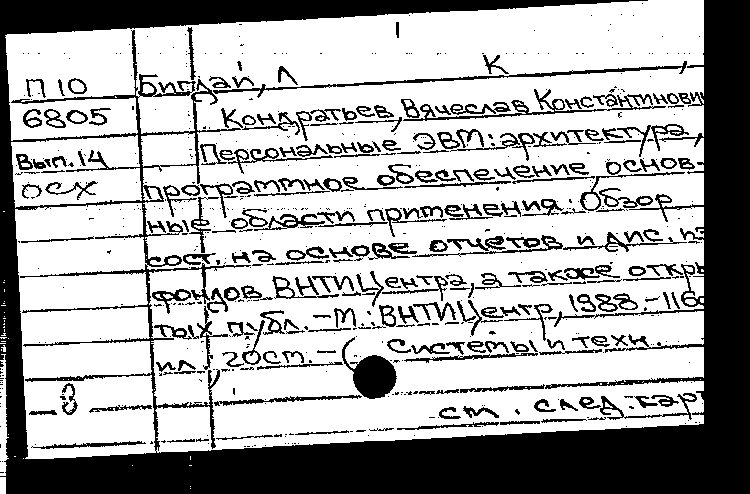 П 10 Биглай, Л К ,
6805 Кондратьев, Вячеслав Константинович
Вып. 14 Персональные ЭВМ: архитектура,
осх программное обеспечение, основ-
ные области применения: Обзор
сост. на основе отчетов и дис. из
фондов ВНТИЦентра, а также откры
тых публ. - М.: ВНТИЦентр, 1988. - 116с
ил.; 20 см. - ( Системы и техн.
8
см. след. карт